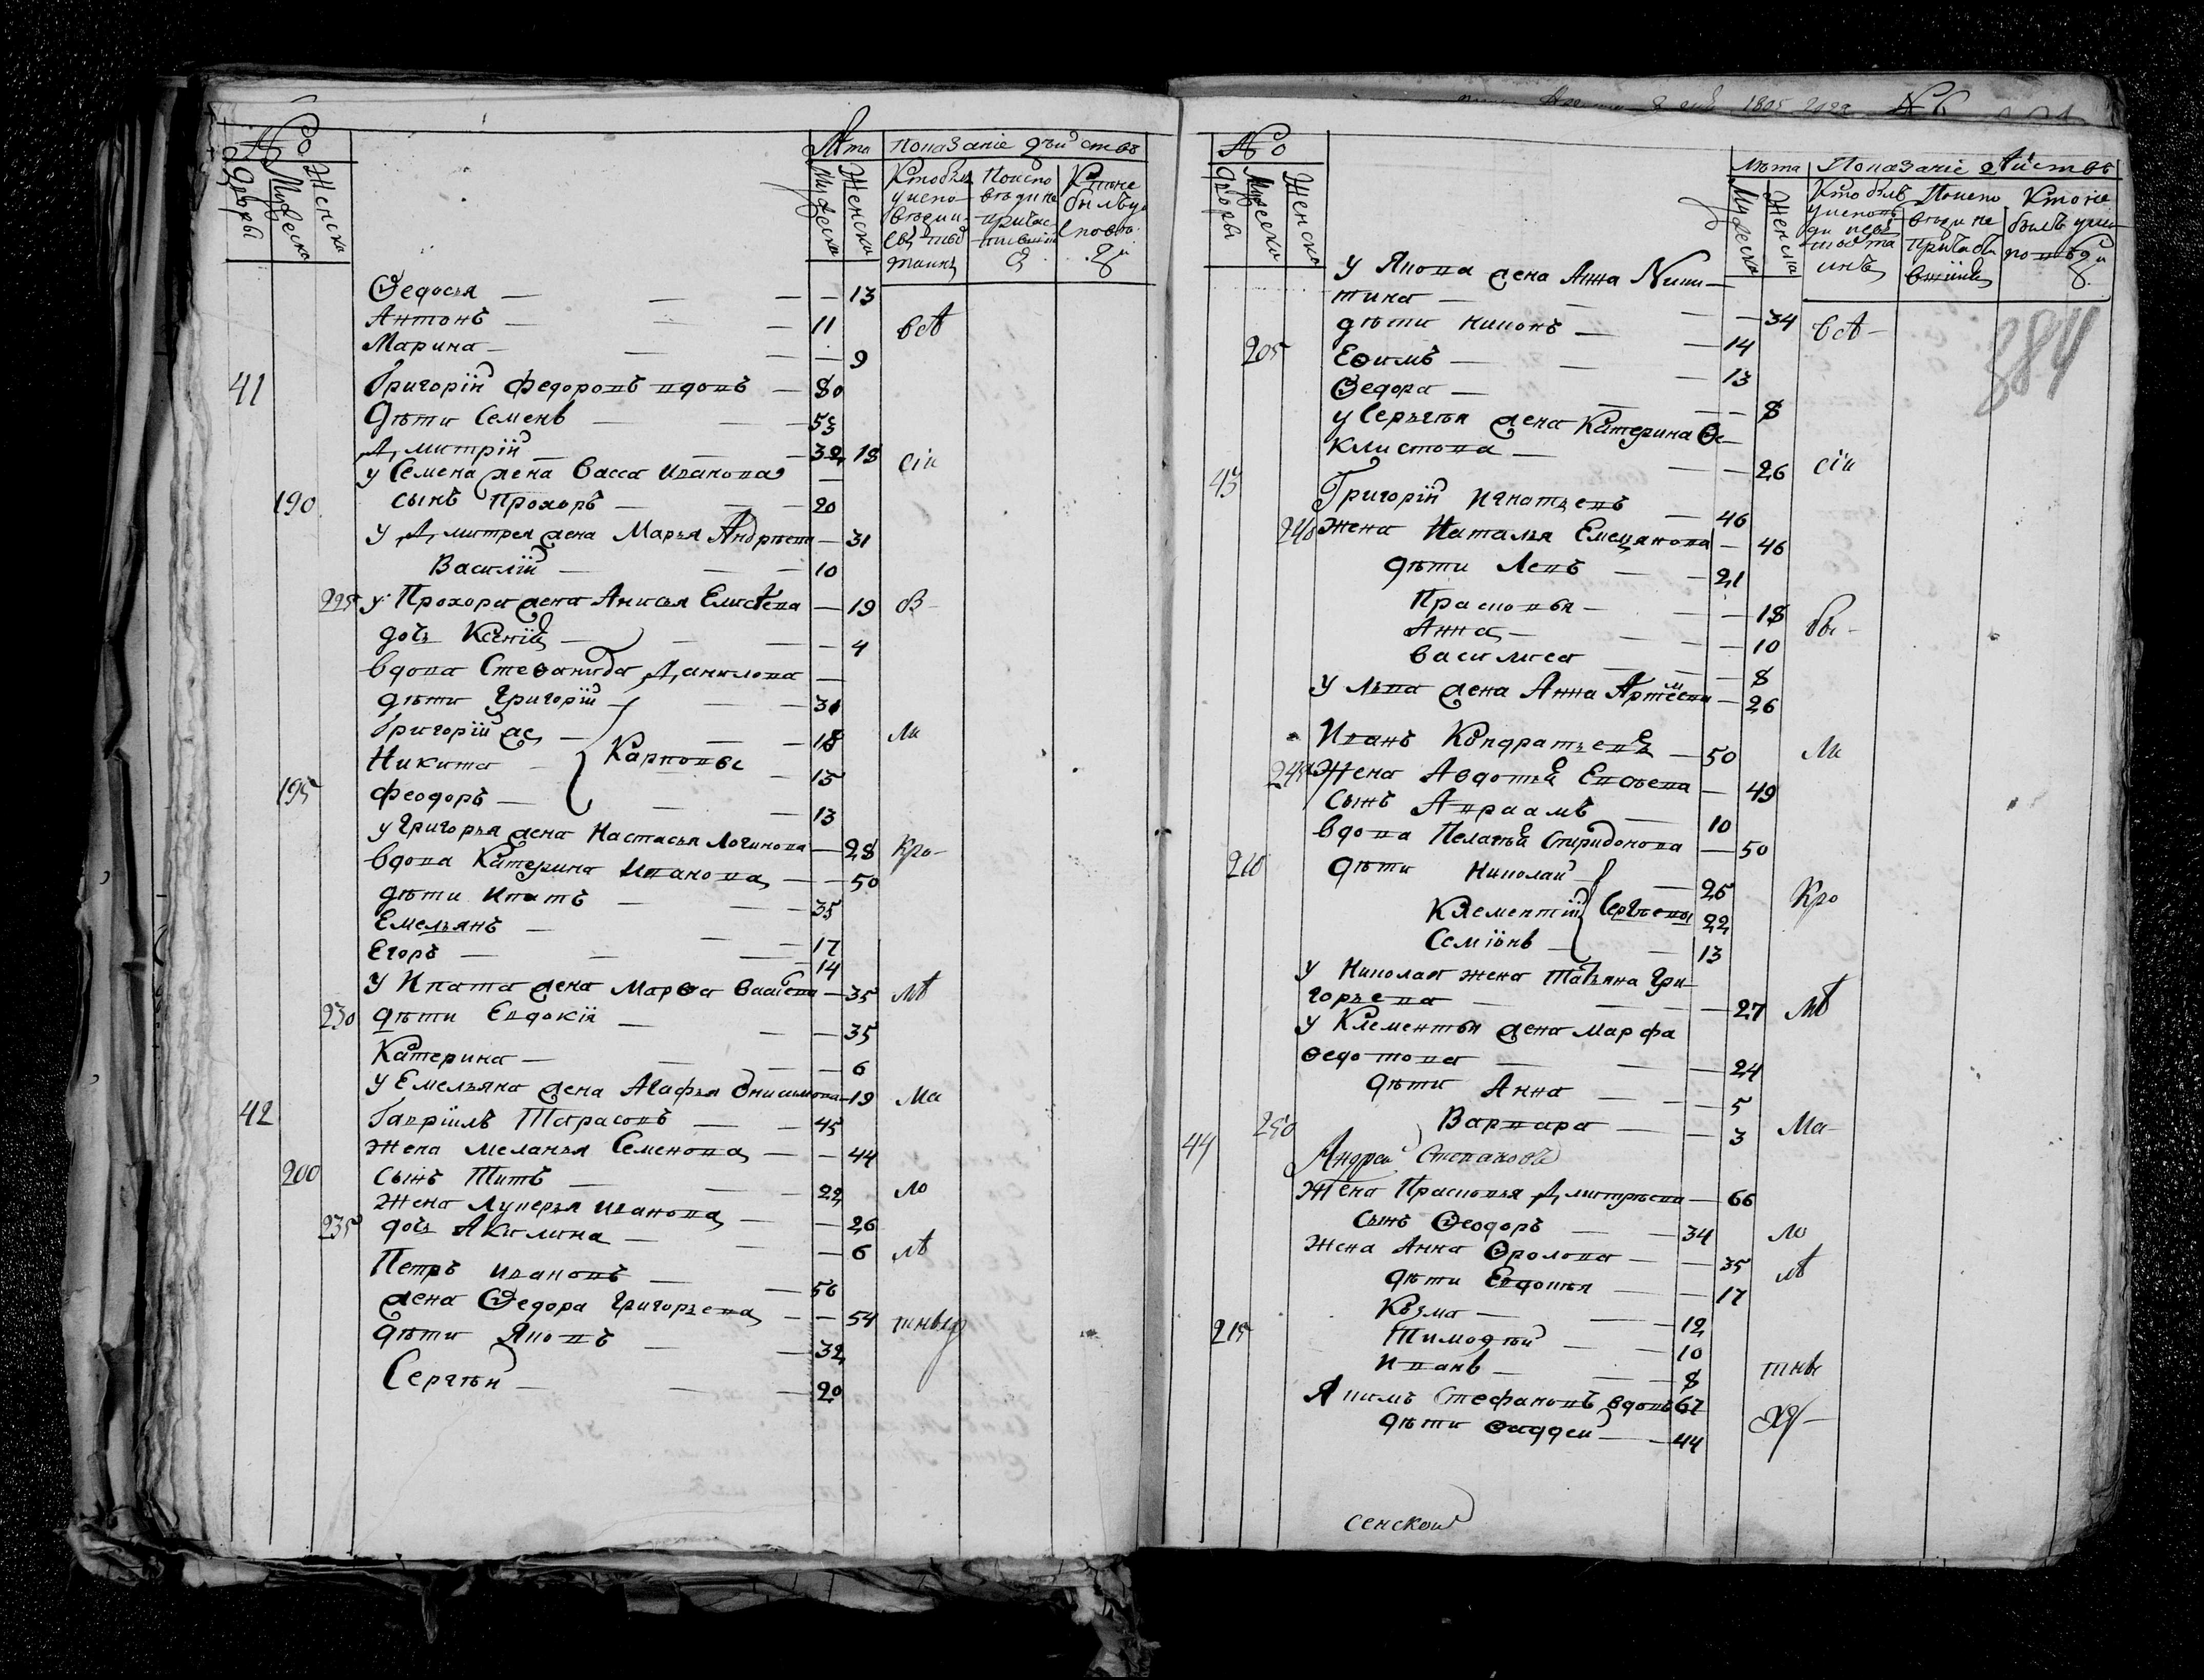 No
Лѣта Показаніе дѣйствъ
дворы Мужеска Женска
Мужеска Женска
Кто былъ у исповѣди и святыхъ таинъ
По исповѣди не причастившійся
Кто не былъ у исповѣди
Ѳедосья — 13
Антонъ — 11 всѣ
Марина — 9
41 Григорій Федоровъ вдовъ — 80
Дѣти Семенъ — 53
Дмитрій — 32 18
у Семена жена Васса Иванова — сіи
190 сынъ Прохоръ — 20
у Дмитрея жена Марья Андрѣева — 31
Василій — 10
225 у Прохора жена Анисья Елисѣева — 19 В
дочь Ксенія — 4
вдова Стеѳанида Данилова —
дѣти Григорій — 31
Григорій же — 18 ли
Никита — Карповы — 15
195 Феодоръ — 13
у Григорья жена Настасья Логинова — 28 Кро-
вдова Катерина Иванова — 50
дѣти Ипатъ — 35
Емельянъ — 17
Егоръ — 14
у Ипата жена Марѳа Васильева — 35 лѣ
230 дѣти Евдокія — 35
Катерина — 6
у Емельяна жена Агафья Онисимова — 19 Ма
42 Гавріилъ Тарасовъ — 45
жена Меланья Семенова — 44
200 сынъ Титъ — 22 ло
жена Лукерья Иванова — 26
235 дочь Акилина — 6 лѣ
Петръ Ивановъ — 56
жена Ѳедора Григорьева — 54 тны
дѣти Яковъ — 32
Сергѣй — 20
1805 года
No
Лѣта Показаніе дѣйствъ
дворы Мужеска Женска
Мужеска Женска
Кто былъ у исповѣди и святыхъ таинъ
По исповѣди не причастившійся
Кто не былъ у исповѣди
384
у Якова жена Анна Ники-
тина — 34 всѣ-
дѣти Никонъ — 14
205 Еѳимъ — 13
Ѳедора — 8
у Сергѣя жена Катерина Ѳе-
клистова — 26 сіи
43 Григорій Игнатьевъ — 46
240 жена Наталья Емельянова — 46
дѣти Левъ — 21
Прасковья — 18 бы-
Анна — 10
Василиса — 8
у Льва жена Анна Артемьева — 26
Иванъ Кондратьевъ — 50 Ли
245 Жена Авдотья Евсѣева — 49
сынъ Авраамъ — 10
вдова Пелагѣя Спиридонова — 50
210 дѣти Николай — 25
Клементій Сергѣевы 22 Кро
Семіонъ — 13
у Николая жена Татьяна Гри-
горьева — 27 лѣ
у Клементья жена Марфа
Ѳедотова — 24
дѣти Анна — 5
250 Варвара — 3 Ма-
44 Андрей Степановъ
жена Прасковья Дмитрѣева — 66
сынъ Ѳеодоръ — 34 ло
жена Анна Ѳролова — 35
дѣти Евдокѣя — 17 лѣ
Козма — 12
215 Тимоѳѣй — 10
Иванъ — 8 тны
Якимъ Стефановъ вдовъ 67
дѣти Ѳаддей — 44
сенской